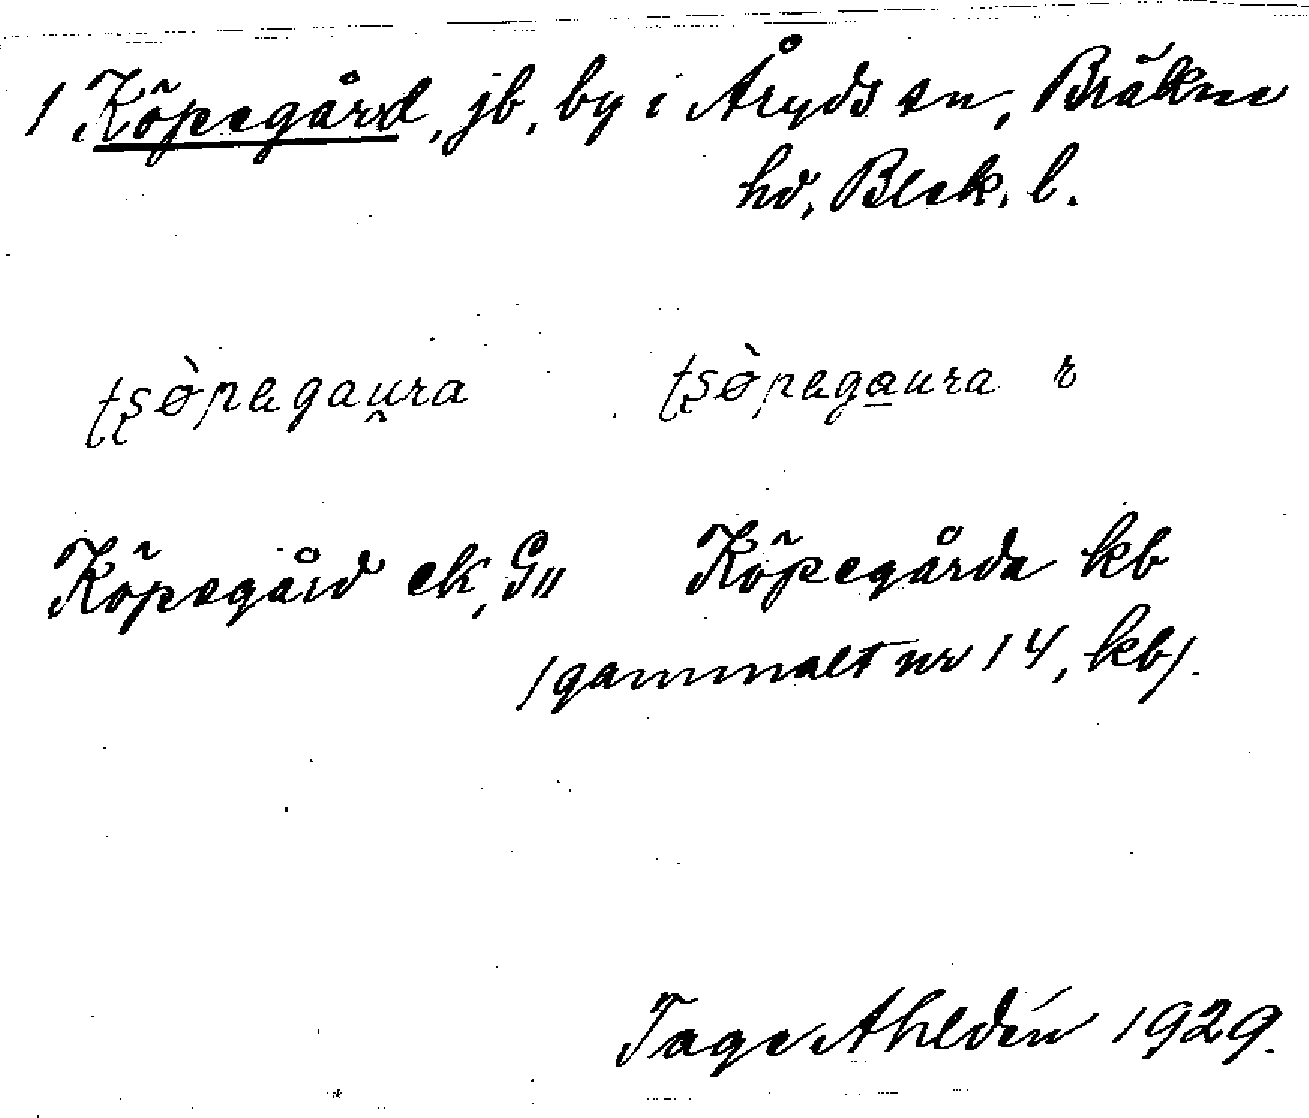 1 Köpegård, jb, by i Åryds sn, Bräkne
hd, Blek. l.
tʂø̀pagau̯ra tʂø̀paga̲ura r
Köpegård ek, G" Köpegårda kb
/gammalt nr 14, kb/.
Tage Ahldén 1929.